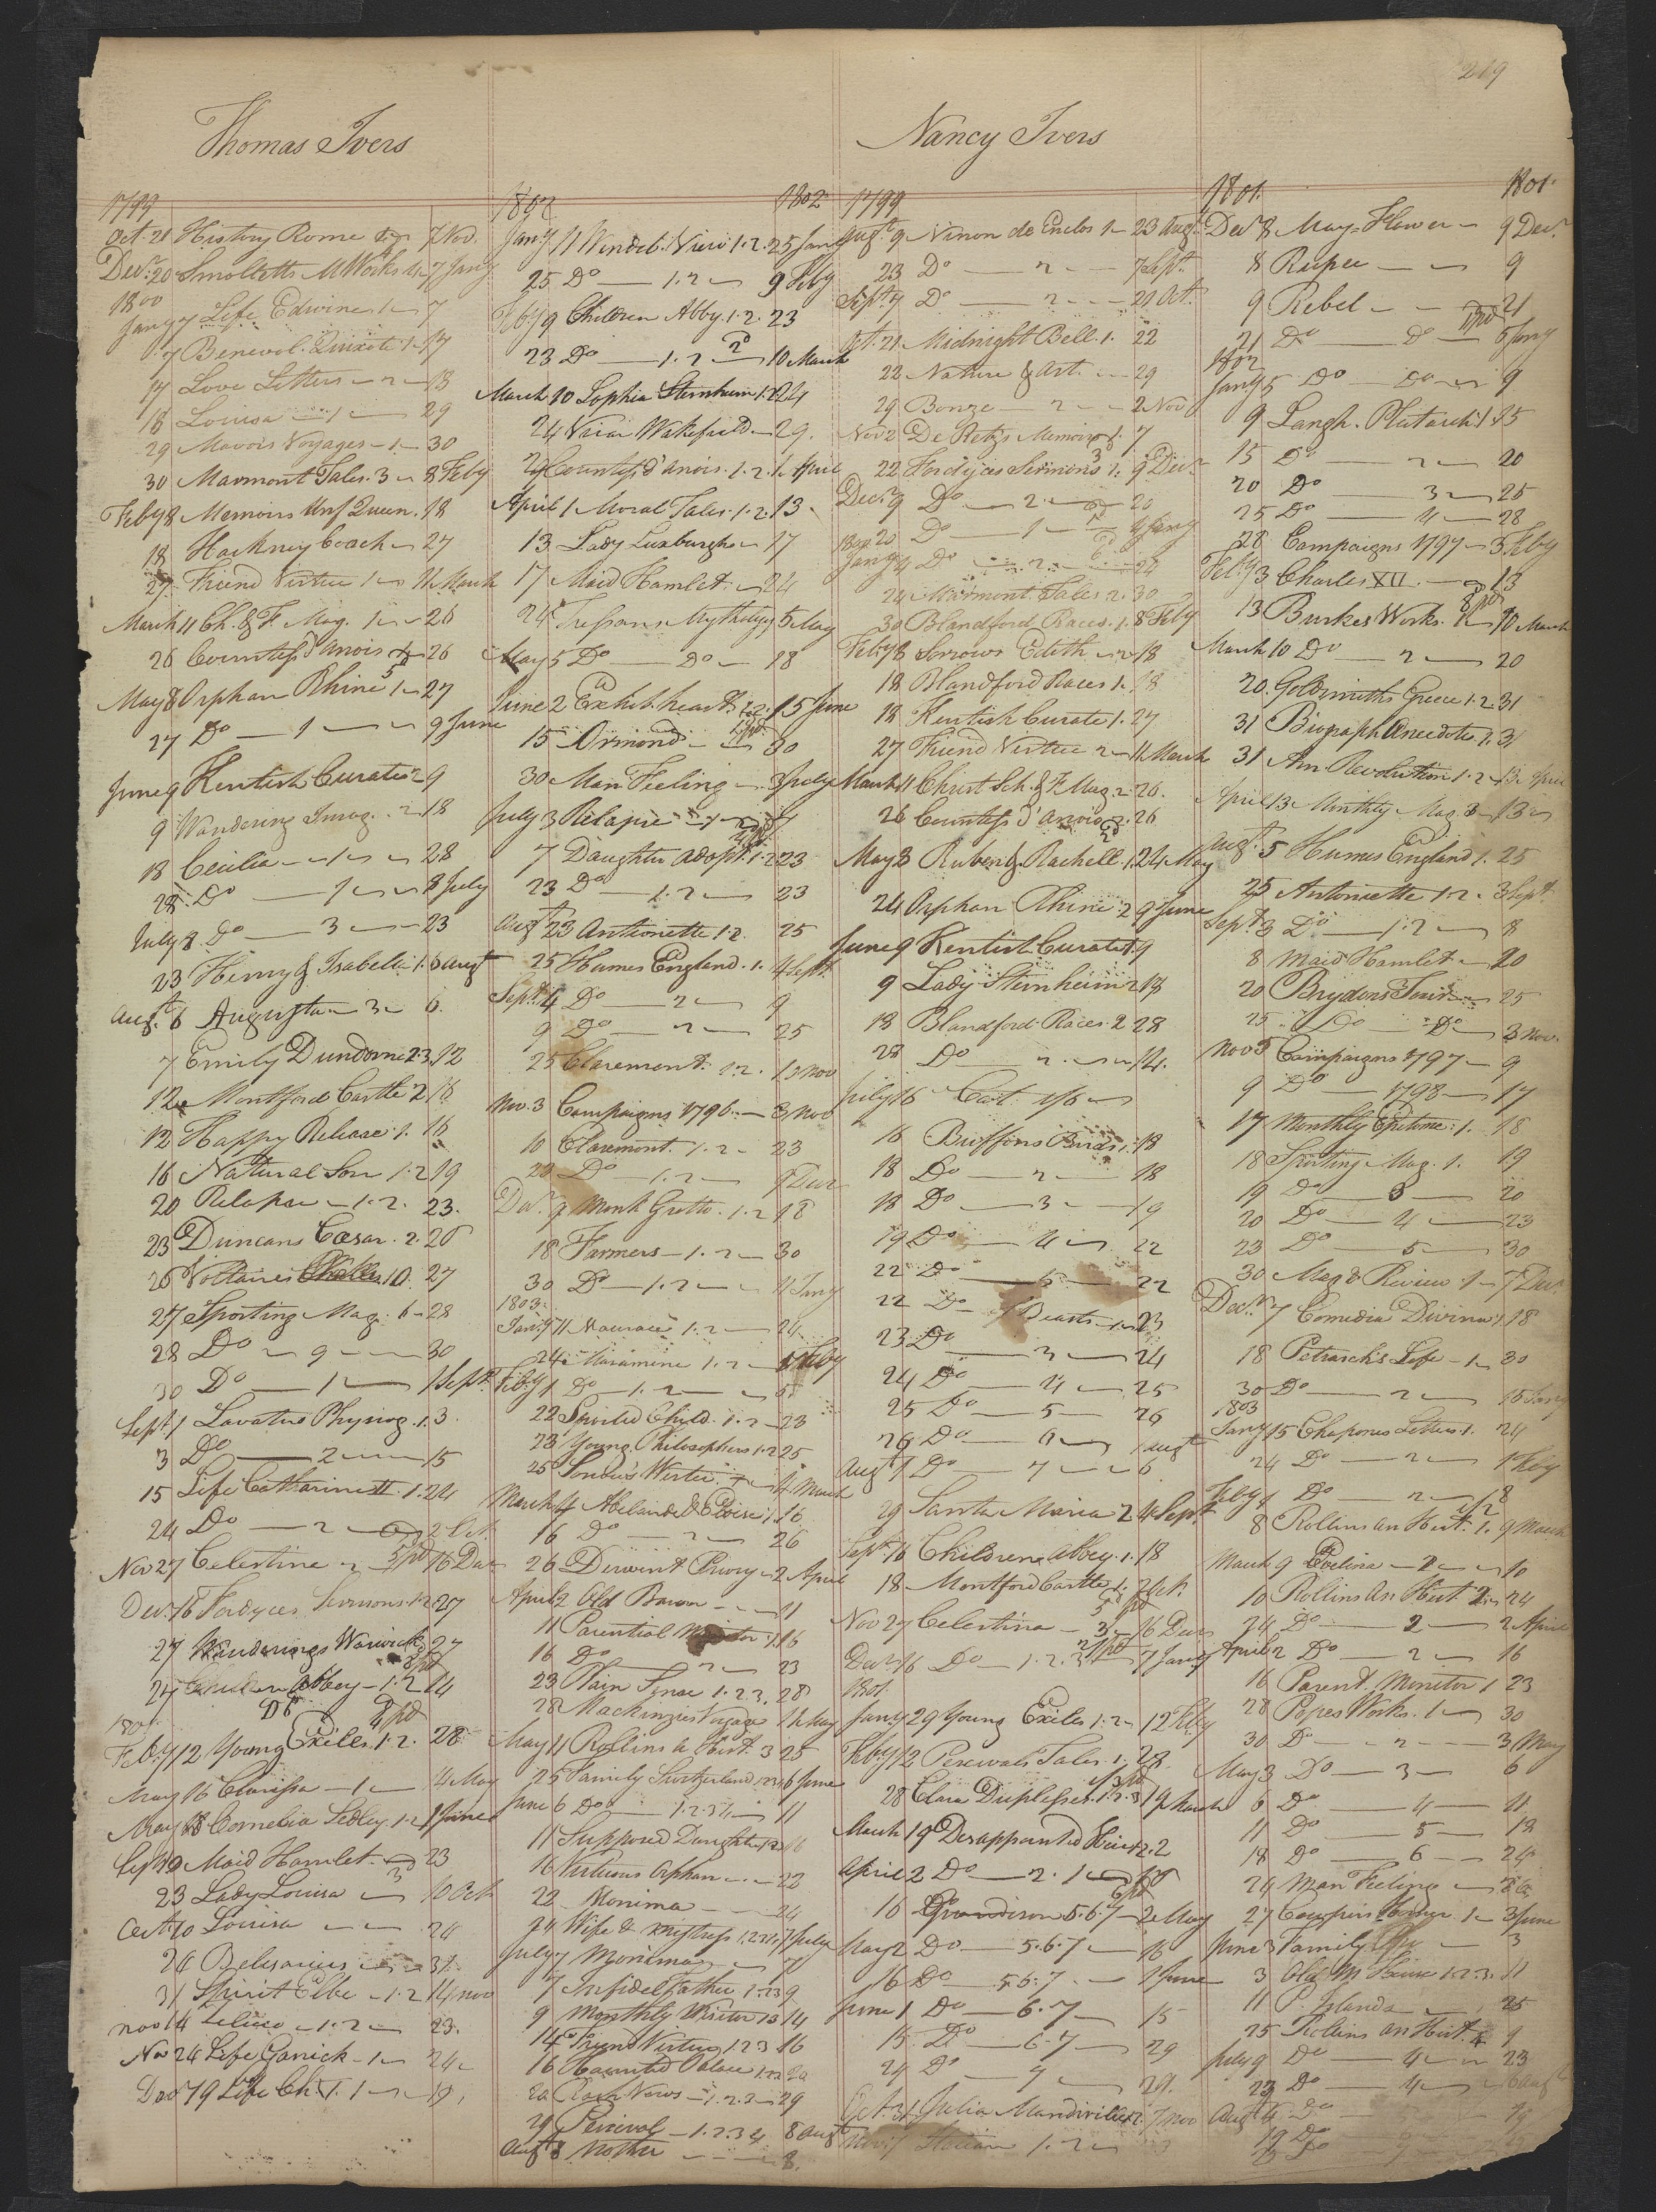 219
Thomas Ivers
1799
Oct. 21 History Rome 7 Nov.
Decr. 20 Smolletts Works 4 7 Jany
1800
Jany 7 Life Edwin 1 7
7 Benevol. Quixote 1 17
17 Love Letters 2 18
18 Louisa 1 29
29 Mavors Voyages 1 30
30 Marmont Tales. 3 8 Feby
Feby 8 Memoirs Unf Queen. 18
18 Hackney Coach 27
27 Friend Virtue 1 11 March
March 11 Ch. & F. Mag. 1 26
26 Countess d'anois 26
May 8 Orphan Rhine 1 27
27 Do 1 9 June
June 9 Kentish Curate 2 9
9 Wandering Imag. 2 18
18 Cecilia 1 28
28 Do 1 8 July
July 8 Do 3 23
23 Henry & Isabella 1. 6 augt
augt. 6 Augusta 3 6.
7 Emily Dundorne 2.3 12
12 Montford Castle 2 16
12 Happy Release 1. 16
16 Natural Son 1.2 19
20 Relapse 1.2. 23.
23 Duncans Cæsar. 2. 26
26 Voltaires 10. 27
27 Sporting Mag. 6 28
28 Do 9 30
30 Do 1 1 Sept.
Sept. 1 Lavaters Physiog. 1. 3.
3 Do 2 15
15 Life Catharine II. 1. 24
24 Do 2 2 Oct
Nov 27 Celestina 2 16 Dec
Decr. 16 Fordyces Sermons 1.2 27
27 Wanderings Warwick 27
27 Children Abbey 1.2 14
Do
1801.
Feby 12 Young Exiles. 1.2. 28
May 16 Clarissa 1 14 May
May 18 Cornelia Sedley. 1.2 1 June
Sept 19 Maid Hamlet. 23
23 Lady Louisa 10 Oct
Oct 10 Louisa 24
24 Belesarius 31
31 Spirit Elbe 1.2 14 nov
nov 14 Celico 1.2 23.
Nov 24 Life Garrick 1 24
Decr 19 Life Ch. V. 1 19.
1802 1802
Jany 11 Vindob. View 1.2. 25 Jany
25 Do 1.2 9 Feby
Feby 9 Children Abby. 1.2. 23
23 Do 1.2 10 March
March 10 Sophia Sternheim 1.2 24
24 Vicar Wakefield 29.
29 Countess d'anois. 1.2. 1 April
April 1 Moral Tales. 1.2. 13.
13 Lady Luxburgh 17
17 Maid Hamlet. 24
24 Tressans Mythology 5 May
May 5 Do Do 18
June 2 Exhib. heart 1.2. 15 June
15 Ormond 30
30 Man Feeling 3 July
July 3 Relapse 7
7 Daughter adopt. 1.2 23
23 Do 1.2 23
augt 23 Antionette 1.2. 25
25 Humes England. 1. 4 Sept.
Sept. 4 Do 2 9
9 Do 2 25
25 Claremont. 1.2. 10 nov
Nov. 3 Campaigns 1796. 3 nov
10 Claremont. 1.2 23
23 Do 1.2 9 Decr
Decr. 9 Monk Grotto. 1.2 18
18 Farmers 1.2 30
30 Do 1.2 11 Jany
1803.
Jany 11 1.2 24
24 1.2 1 Feby
Feby 1 Do 1.2 5
22 Spirited Child. 1.2 23
23 Young Philosophers 1.2 25
25 Louder's Virtue 4 March
March 4 Abelarde & Eloise 1. 16
16 Do 2 26
26 Derwent Priory 2 April
April 2 Old Baron 11
11 Parential Monitor 1 16
16 Do 2 23
23 Plain Sense 1.2.3. 28
28 Mackinzies Voyage 11 May
May 11 Rollins A. Hist. 3 25
25 Family Switzerland 6 June
June 6 Do 1.2.3.4 11
11 Supposed Daughter 16
16 Virtuous Orphan 22
22 Monima 24
24 Wife & Mistress 1.2.3.4. 7 July
July 7 Monima 7
7 Infidel Father 1.2.3 9
9 Monthly Visitor 10 14
14 Friend Virtue 1.2.3 16
16 Haunted Palace 1.2.3 20
20 Clara Varos 1.2.3 29
29 Percival 1.2.3.4 8 augt
augt 8 Mother 8.
Nancy Ivers
1799
Augt 9 Ninon de Enclos 1 23 Augt
23 Do 2 7 Sept.
Sept. 7 Do 2 21 Oct.
Oct. 21 Midnight Bell. 1. 22
22 Nature & Art. 29
29 Bonze 2 2 Nov
Nov 2 De Retz's Memoirs 1. 7
22 Fordyces Sermons 1. 9 Decr
Decr 9 Do 2 20
20 Do 1 4 Jany
1800
Jany 4 Do 2 24
24 Marmont Tales 2. 30
30 Blandford Races. 1. 8 Feby
Feby 8 Sorrows Edith 2 18
18 Blandford Races 1. 18
18 Kentish Curate 1. 27
27 Friend Virtue 2 11 March
March 11 Christ Sch. & F. Mag. 2 26.
26 Countess d'anois 2. 26
May 3 Ruben & Rachell. 1. 24 May
24 Orphan Rhine 2 9 June
June 9 Kentish Curate 1 9
9 Lady Sternheim 2 18
18 Blandford Races 2 28
28 Do 2 14.
July 16 Cat 1/6
16 Buffons Birds 1. 18
18 Do 2 18
18 Do 3 19
19 Do 4 22
22 Do 5 22
22 Do Beasts 1 23
23 Do 3 24
24 Do 4 25
25 Do 5 26
26 Do 6 1 augt
augt 1 Do 7 6
29 Santa Maria 2 4 Sept
Sept. 16 Children Abbey. 1. 18
18 Montford Castle 1. 2 Oct.
Nov 27 Celestina 3. 16 Decr
Decr. 16 Do 1.2.3 7 Jany
1801.
Jany 29 Young Exiles 1.2 12 Feby
Feby 12 Percivals Tales. 1. 28.
28 Clara Duplesses. 1.2.3 19 March
March 19 Disappointed Heir 1.2. 2
April 2 Do 2. 1 16
16 Grandison 5.6.7 2 May
May 2 Do 5.6.7 16
16 Do 5.6.7. 1 June
June 1 Do 6.7 15
15 Do 6.7 29
29 Do 7 29.
Oct. 31 Julia Mandiville 1.2 7 nov
Nov. 7 Italian 1.2
1801. 1801.
Decr 8 May-Flower 9 Decr.
8 Rupee 9
9 Rebel 21
21 Do Do 5 Jany
1802
Jany 5 Do Do 9
9 Langh. Plutarch 1 15
15 Do 2 20
20 Do 3 25
25 Do 4 28
28 Campaigns 1797 3 Feby
Feby 3 Charles XII. 13
13 Burkes Works. 1 10 March
March 10 Do 2 20
20. Goldsmiths Greece 1.2. 31
31 Biograph Anecdotes 1. 31
31 Am. Revolution 1.2 13 April
April 13 Monthly Mag. 3 13
augt. 5 Humes England 1. 25
25 Antoinette 1.2. 3 Sept.
Sept. 3 Do 1.2 8
8 Maid Hamlet 20
20 Brydons Tour 25
25 Do Do 3 Nov.
Nov 3 Campaigns 1797 9
9 Do 1798 17
17 Monthly Epitome. 1. 18
18 Sporting Mag. 1. 19
19 Do 3 20
20 Do 4 23
23 Do 5 30
30 Mag. & Review 1 7 Decr
Decr. 7 Comedia Divina 1 18
18 Petrarchs Life 1 30
30 Do 2 15 Jany
1803
Jany 15 Chapones Letters 1. 24
24 Do 2 1 Feby
Feby 1 Do 2 8
8 Rollins An Hist. 1. 9 March
March 9 Evelina 2 10
10 Rollins An Hist 2 24
24 Do 2 2 April
April 2 Do 2 16
16 Parent. Monitor 1 23
28 Popes Works. 1 30
30 Do 2 3 May
May 3 Do 3 6
6 Do 4 11
11 Do 5 18
18 Do 6 24
24 Man Feeling 26
27 Cowpers Homer 1 3 June
June 3 Family 3
3 Old M. House 1.2.3. 11
11 P. Islands 25
25 Rollins An Hist. 4 9
July 9 Do 4 23
23 Do 4 6 augt
Augt 6 Do 19
19 Do
Do